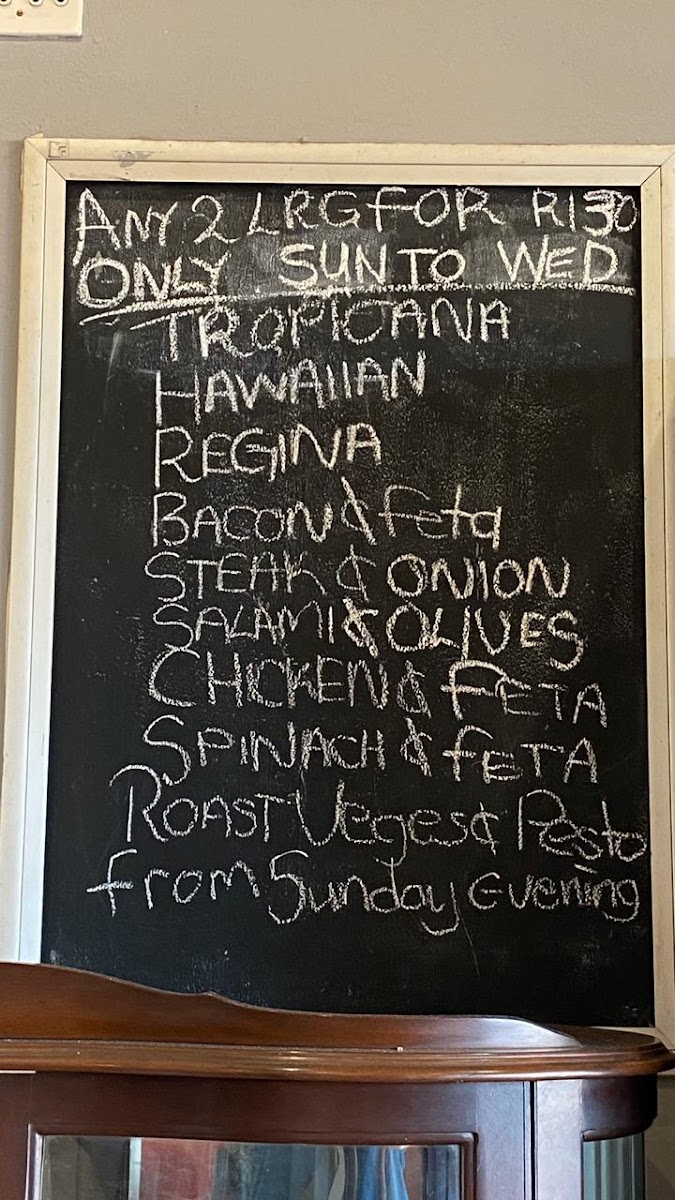 ANY 2 LRG FOR R130
ONLY SUN TO WED
TROPICANA
HAWAIIAN
REGINA
BACON & Feta
STEAK & ONION
SALAMI & OLIVES
CHICKEN & FETA
SPINACH & FETA
ROAST Veges & Pesto
from Sunday evening